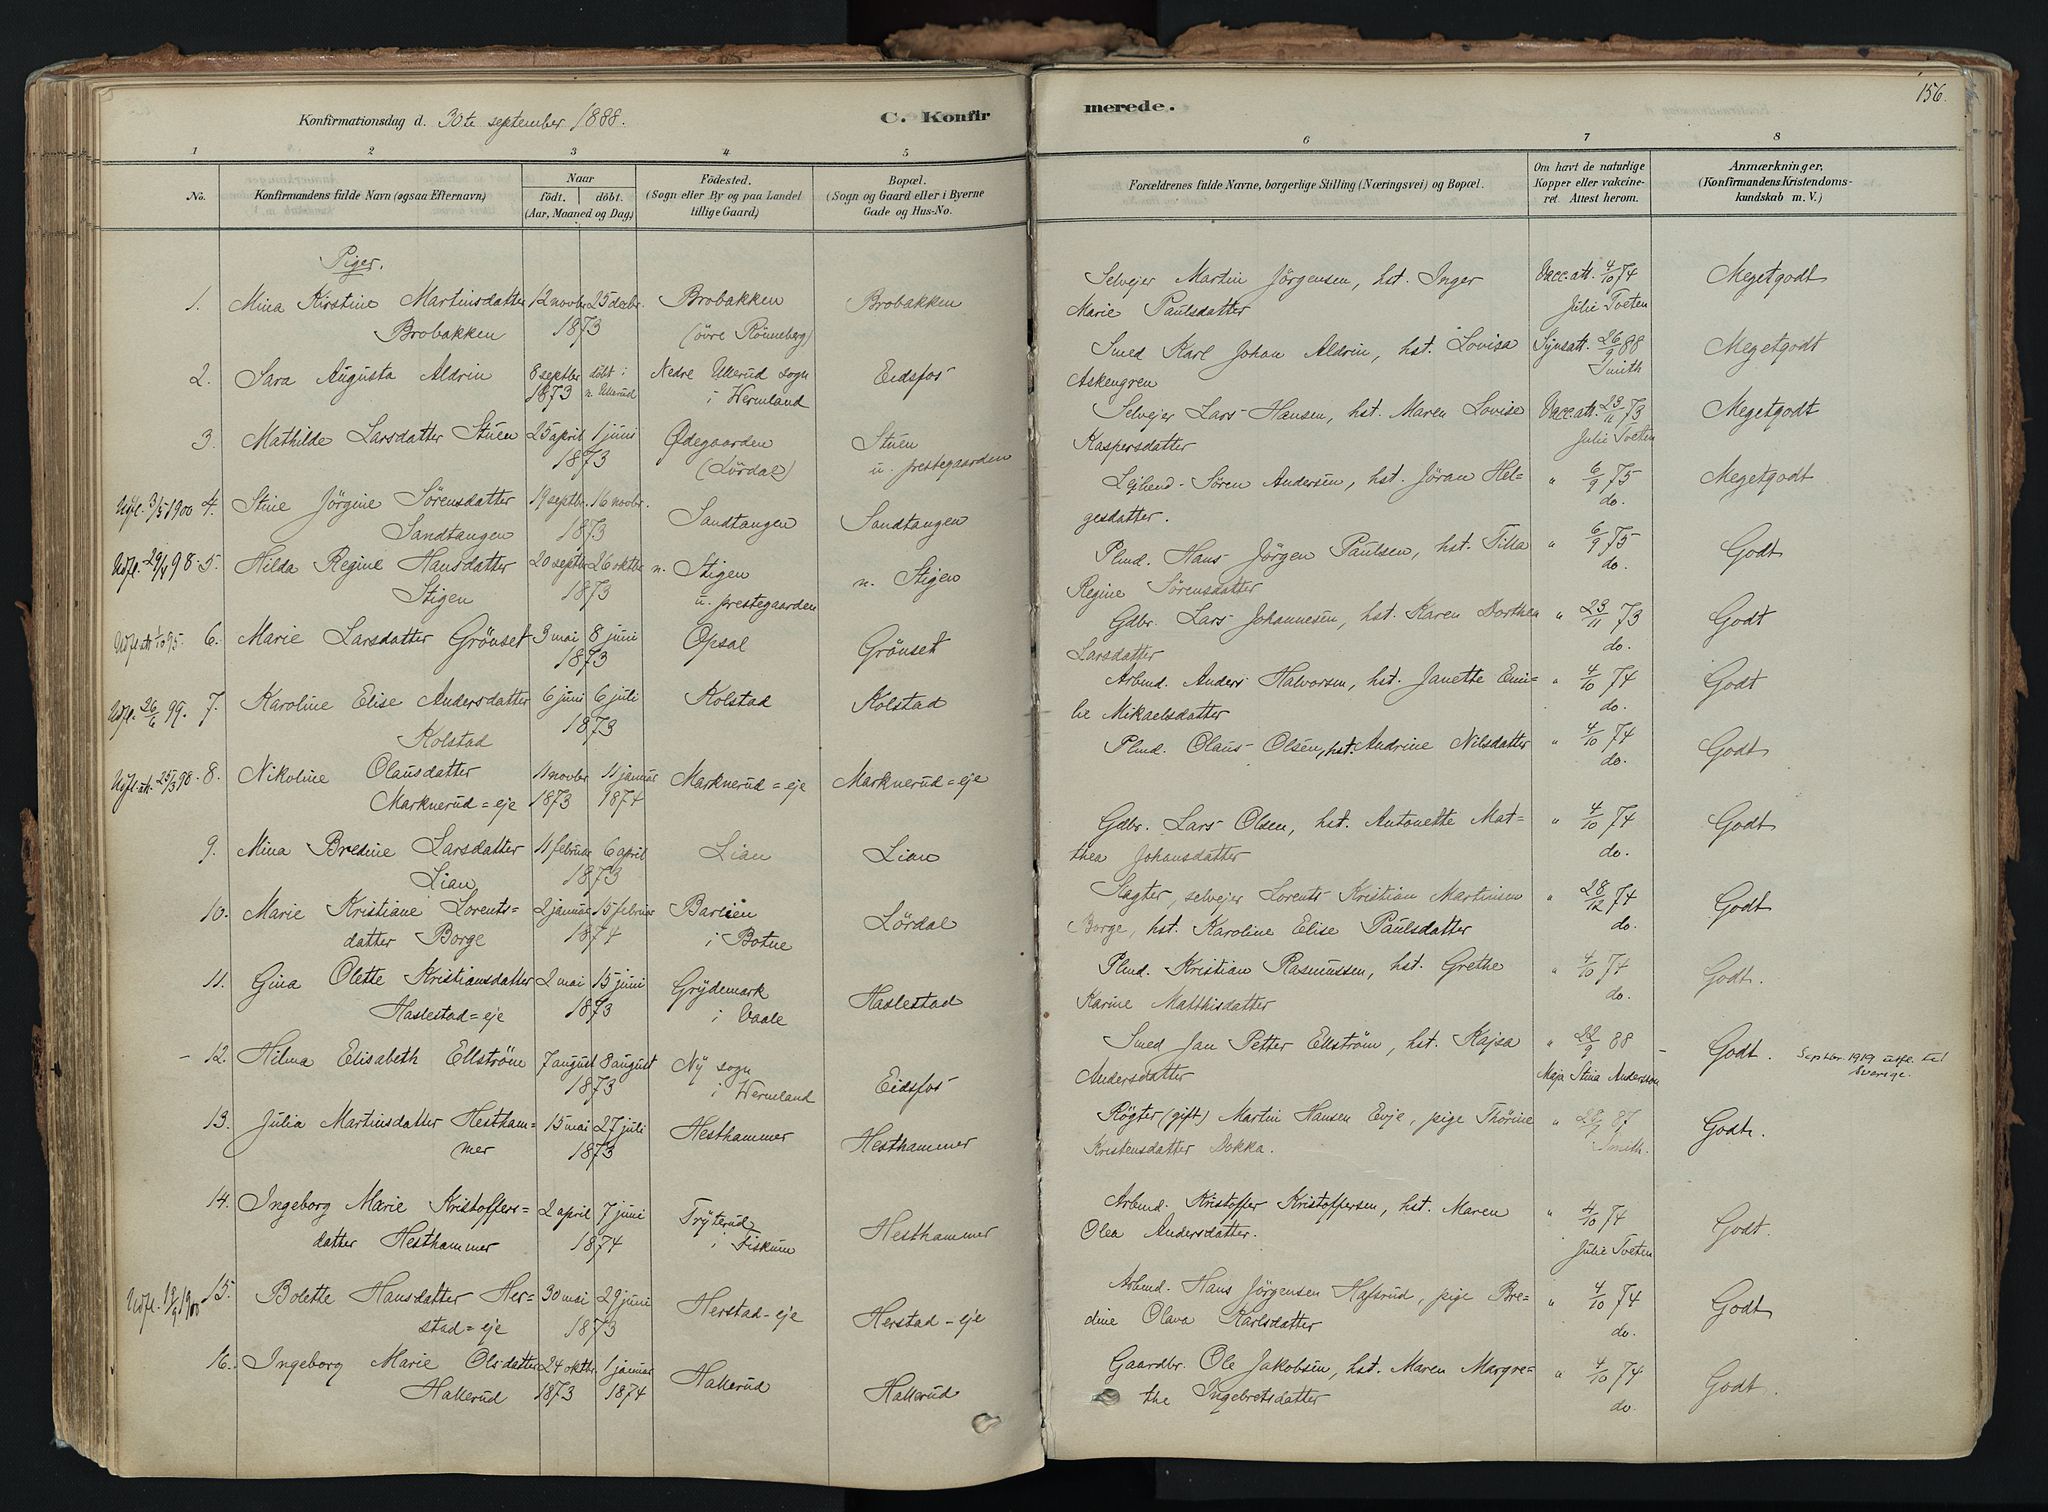 156.
Konfirmationsdag d. 30te september 1888.
C. Konfirmerede.
1 2 3 4 5 6 7 8
No.
Konfirmandens fulde Navn (ogsaa Efternavn)
Naar
födt. döbt.
(Aar, Maaned og Dag)
Födested.
(Sogn eller By og paa Landet
tillige Gaard)
Bopæl.
(Sogn og Gaard eller i Byerne
Gade og Hus-No.
Forældrenes fulde Navne, borgerlige Stilling (Næringsvei) og Bopæl.
Om havt de naturlige
Kopper eller vakcine-
ret. Attest herom.
Anmærkninger,
(Konfirmandens Kristendoms-
kundskab m. V.)
Piger.
1. Mina Kirstine Martinsdatter 12 novbr. 25 decbr. Brobakken Brobakken Selvejer Martin Jörgensen, hst. Inger Vacc. att. 4/10 74 Megetgodt
Brobakken 1873 (övre Rönneberg) Marie Paulsdatter Julie Tveten
2. Sara Augusta Aldrin 8 septbr döbt i Nedre Ullerud sogn Eidsfos Smed Karl Johan Aldrin, hst. Lovisa Synsatt. 26/9 88 Megetgodt
1873 n. Ullerud i Wermland Askengren Smith
3. Mathilde Larsdatter Stuen 25 april 1 juni Ødegaarden Stuen Selvejer Lars Hansen, hst. Maren Lovise Vacc. att. 23/11 73 Megetgodt
1873 (Lördal) u. prestegaarden Kaspersdatter Julie Tveten
Udfl. 3/5 1900 4. Stine Jörgine Sörensdatter 19 septbr. 16 novbr. Sandtangen Sandtangen Lejlend. Sören Andersen, hst. Jöran Hel= " 6/9 75 Megetgodt
Sandtangen 1873 gesdatter. do.
Udfl. 29/4 98 5. Hilda Regine Hansdatter 20 septbr 26 oktbr n. Stigen n. Stigen Plmd. Hans Jörgen Paulsen, hst. Tilla " 6/9 75 Godt
Stigen 1873 u. prestegaarden Regine Sörensdatter do.
Udfl. att 1/10 95. 6. Marie Larsdatter Grönset 3 mai 8 juni Opsal Grönset Gdbr. Lars Johannesen, hst. Karen Dorthea " 23/11 73 Godt
1873 Larsdatter do.
Udfl. 26/6 99. 7. Karoline Elise Andersdatter 6 juni 6 juli Kolstad Kolstad Arbmd. Anders Halvorsen, hst. Janette Emi= " 4/10 74 Godt
Kolstad 1873 lie Mikaelsdatter do.
Udfl. att. 25/3 98. 8. Nikoline Olausdatter 11 novbr 11 januar Marknerud=eje Marknerud=eje Plmd. Olaus Olsen, hst. Andrine Nilsdatter " 4/10 74 Godt
Marknerud=eje 1873 1874 do.
9. Mina Bredine Larsdatter 11 februar 6 april Lian Lian Gdbr. Lars Olsen, hst. Antonette Mat= " 4/10 74 Godt
Lian 1873 thea Johansdatter do.
10. Marie Kristiane Lorents= 2 januar 15 februar Bareisen Lördal Slagter, selvejer Lorents Kristian Martinsen " 28/12 74 Godt
datter Borge 1874 i Botne Borge, hst. Karoline Elise Paulsdatter do.
11. Gina Olette Kristiansdatter 2 mai 15 juni Grydemark Haslestad Plmd. Kristian Rasmussen, hst. Grethe " 4/10 74 Godt.
Haslestad=eje 1873 i Vaale Karine Matthisdatter do.
- 12. Hilma Elisabeth Ellström 7 august 8 august Ny sogn Eidsfos Smed Jan Petter Ellström, hst. Kajsa " 22/9 88 - Godt. Septbr. 1919 utfl. til
1873 i Wermland Andersdatter Maja Stina Andersson Sverige.
13. Julia Martinsdatter Hestham= 15 mai 27 juli Hesthammer Hesthammer Rögter (gift) Martin Hansen Evje, pige Thorine " 28/9 87 Godt.
mer 1873 Kristensdatter Dokka. Smith.
14. Ingeborg Marie Kristoffers= 2 april 7 juni Tryterud Hesthammer Arbmd. Kristoffer Kristoffersen, hst. Maren " 4/10 74 Godt.
datter Hesthammer 1874 i Fiskum Olea Andersdatter. Julie Tveten
Udfl. 1900 15. Bolette Hansdatter Her= 30 mai 29 juni Herstad-eje Herstad-eje Arbmd. Hans Jörgensen Hafsrud, pige Bre= " 4/10 74 Godt
stad=eje 1873 dine Olava Karlsdatter do.
16. Ingeborg Marie Olsdatter 24 oktbr. 1 januar Hallerud Hallerud Gaardbr. Ole Jakobsen, hst. Maren Margre= " 4/10 74 Godt.
Hallerud 1873 1874 the Ingebretsdatter do.